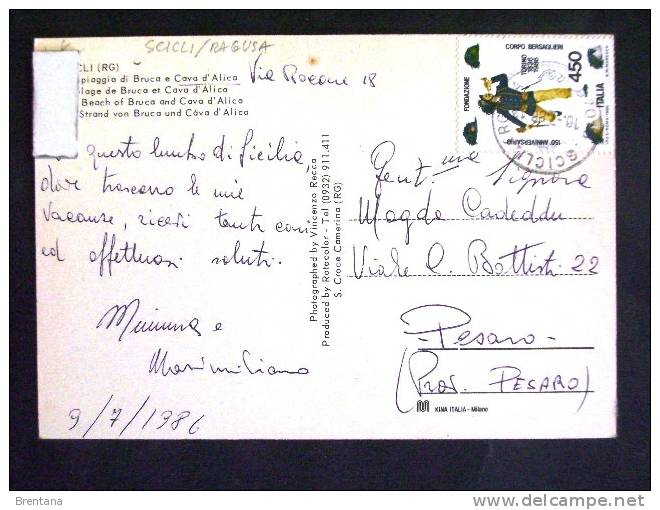 SCICLI/RAGUSA
CLI (RG)
piaggia di Bruca e Cava d'Alica
lage de Bruca et Cava d'Alica
Beach of Bruca and Cava d'Alica
Strand von Bruca und Cava d'Alica
Via Rocone 18
questo lembo di Sicilia
dove trascorro le mie
vacanze, ricevi tanti cari
ed affettuosi saluti.
Mimma e
Massimiliano
9/7/1986
Photographed by Vincenzo Recca
Produced by Rotocolor - Tel (0932) 911.411
S. Croce Camerina (RG)
FONDAZIONE
CORPO BERSAGLIERI
TORINO
1836
1986
150° ANNIVERSARIO
450
ITALIA
SCICLI
Gent.ma Signora
Magda Cadeddu
Viale C. Battisti 22
- Pesaro -
(Prov. PESARO)
KINA ITALIA - Milano
Brentana
delcampe.net